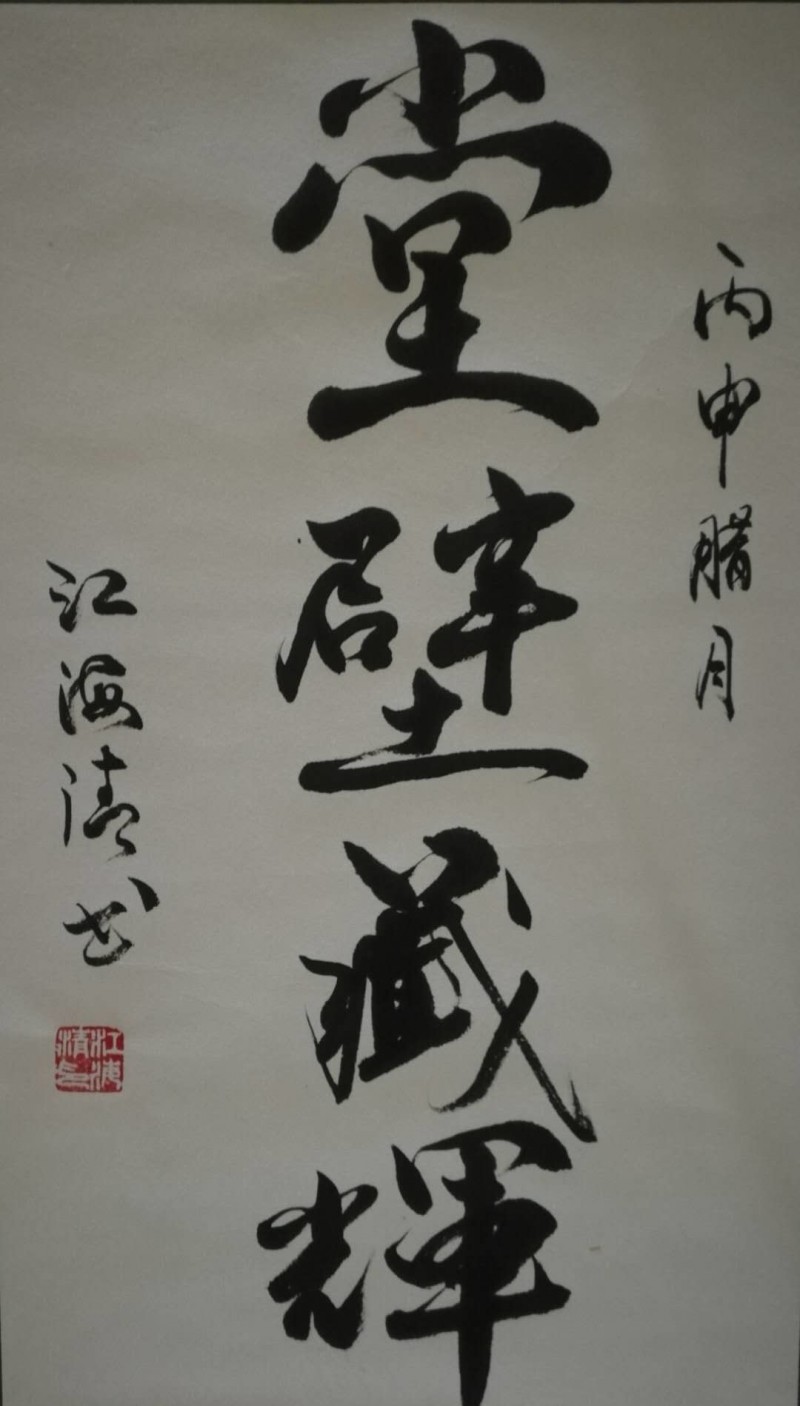 丙申腊月
堂壁藏輝
江海清书
江海清印